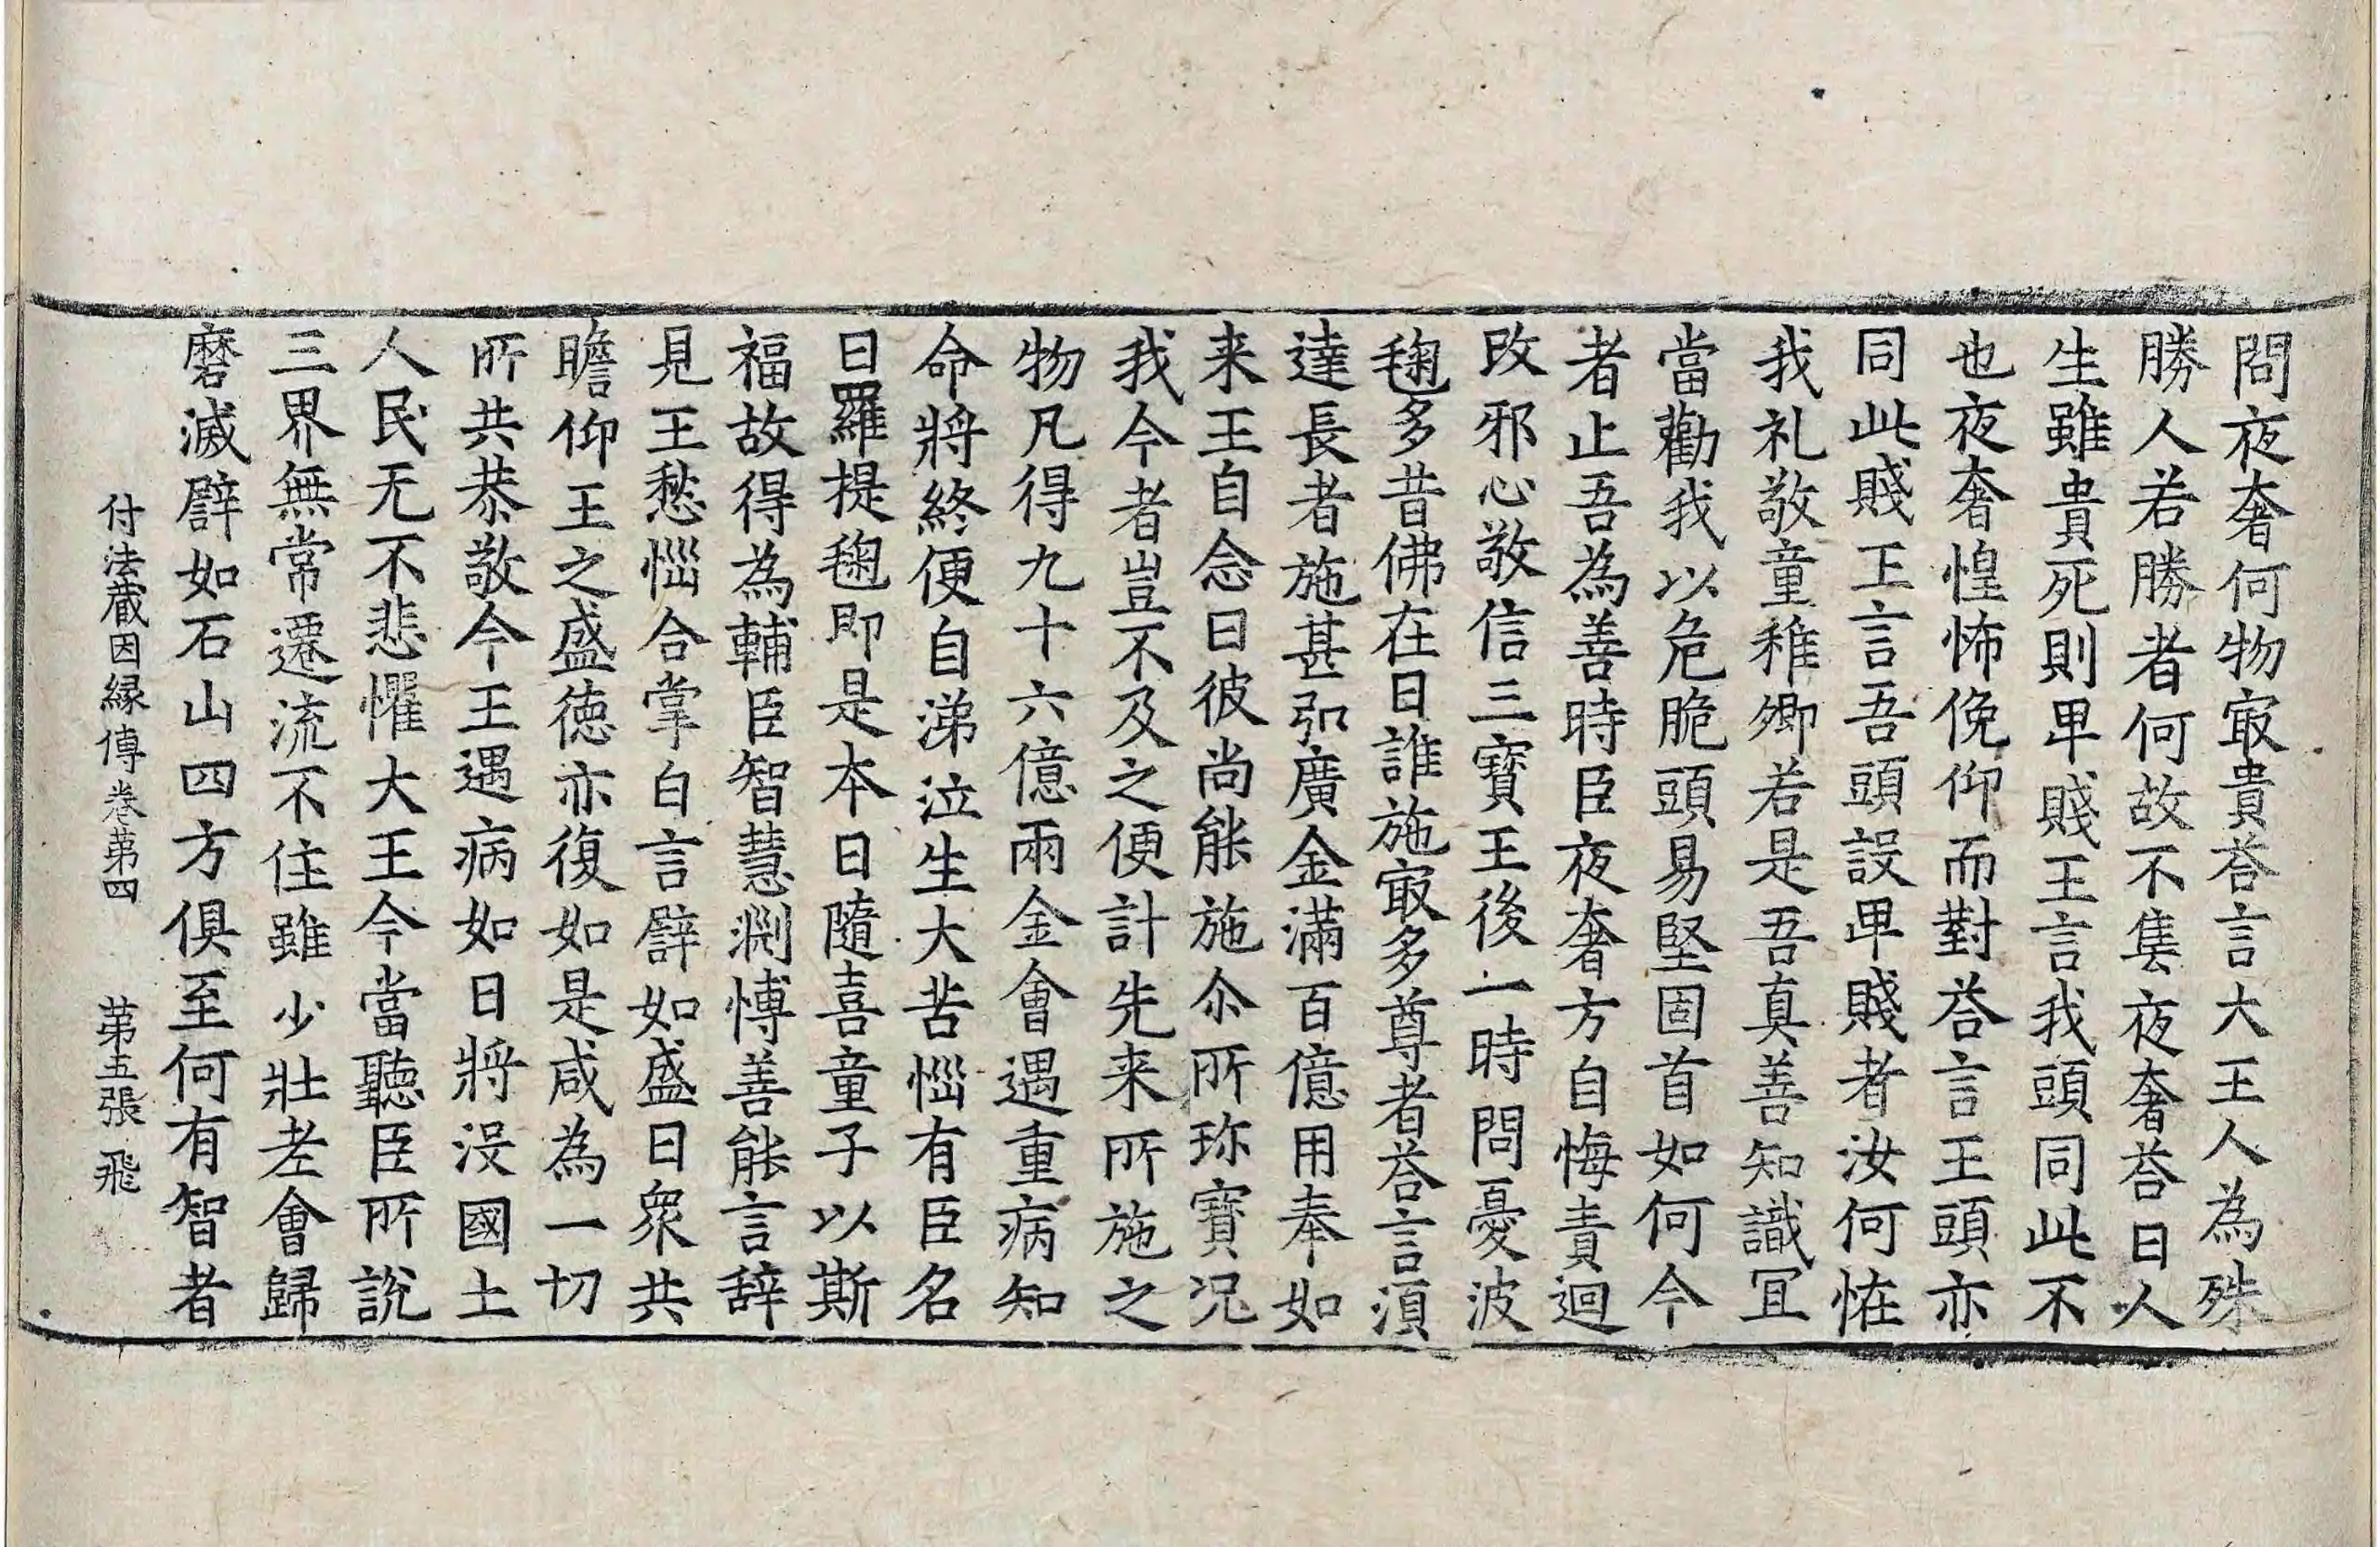 問夜奢何物㝡貴荅言大王人為殊
勝人若勝者何故不隻夜奢荅曰人
生雖貴死則卑賤王言我頭同此不
也夜奢惶怖俛仰而對荅言王頭亦
同此賤王言吾頭設卑賤者汝何恠
我礼敬童稚卿若是吾真善知識冝
當勸我以危脆頭易堅固首如何今
者止吾為善時臣夜奢方自悔責迴
改邪心敬信三寶王後一時問憂波
毱多昔佛在日誰施㝡多尊者荅言湏
達長者施甚弘廣金滿百億用奉如
来王自念曰彼尚能施尒所珎寶况
我今者豈不及之便計先来所施之
物凡得九十六億兩金會遇重病知
命將終便自涕泣生大苦惱有臣名
曰羅提毱即是本日隨喜童子以斯
福故得為輔臣智慧渕愽善能言辞
見王愁惱合掌白言譬如盛日衆共
瞻仰王之盛德亦復如是咸為一切
所共恭敬今王遇病如日將没國土
人民无不悲懼大王今當聽臣所說
三界無常遷流不住雖少壯老會歸
磨滅譬如石山四方俱至何有智者
付法藏因縁傳卷苐四 苐五張 飛